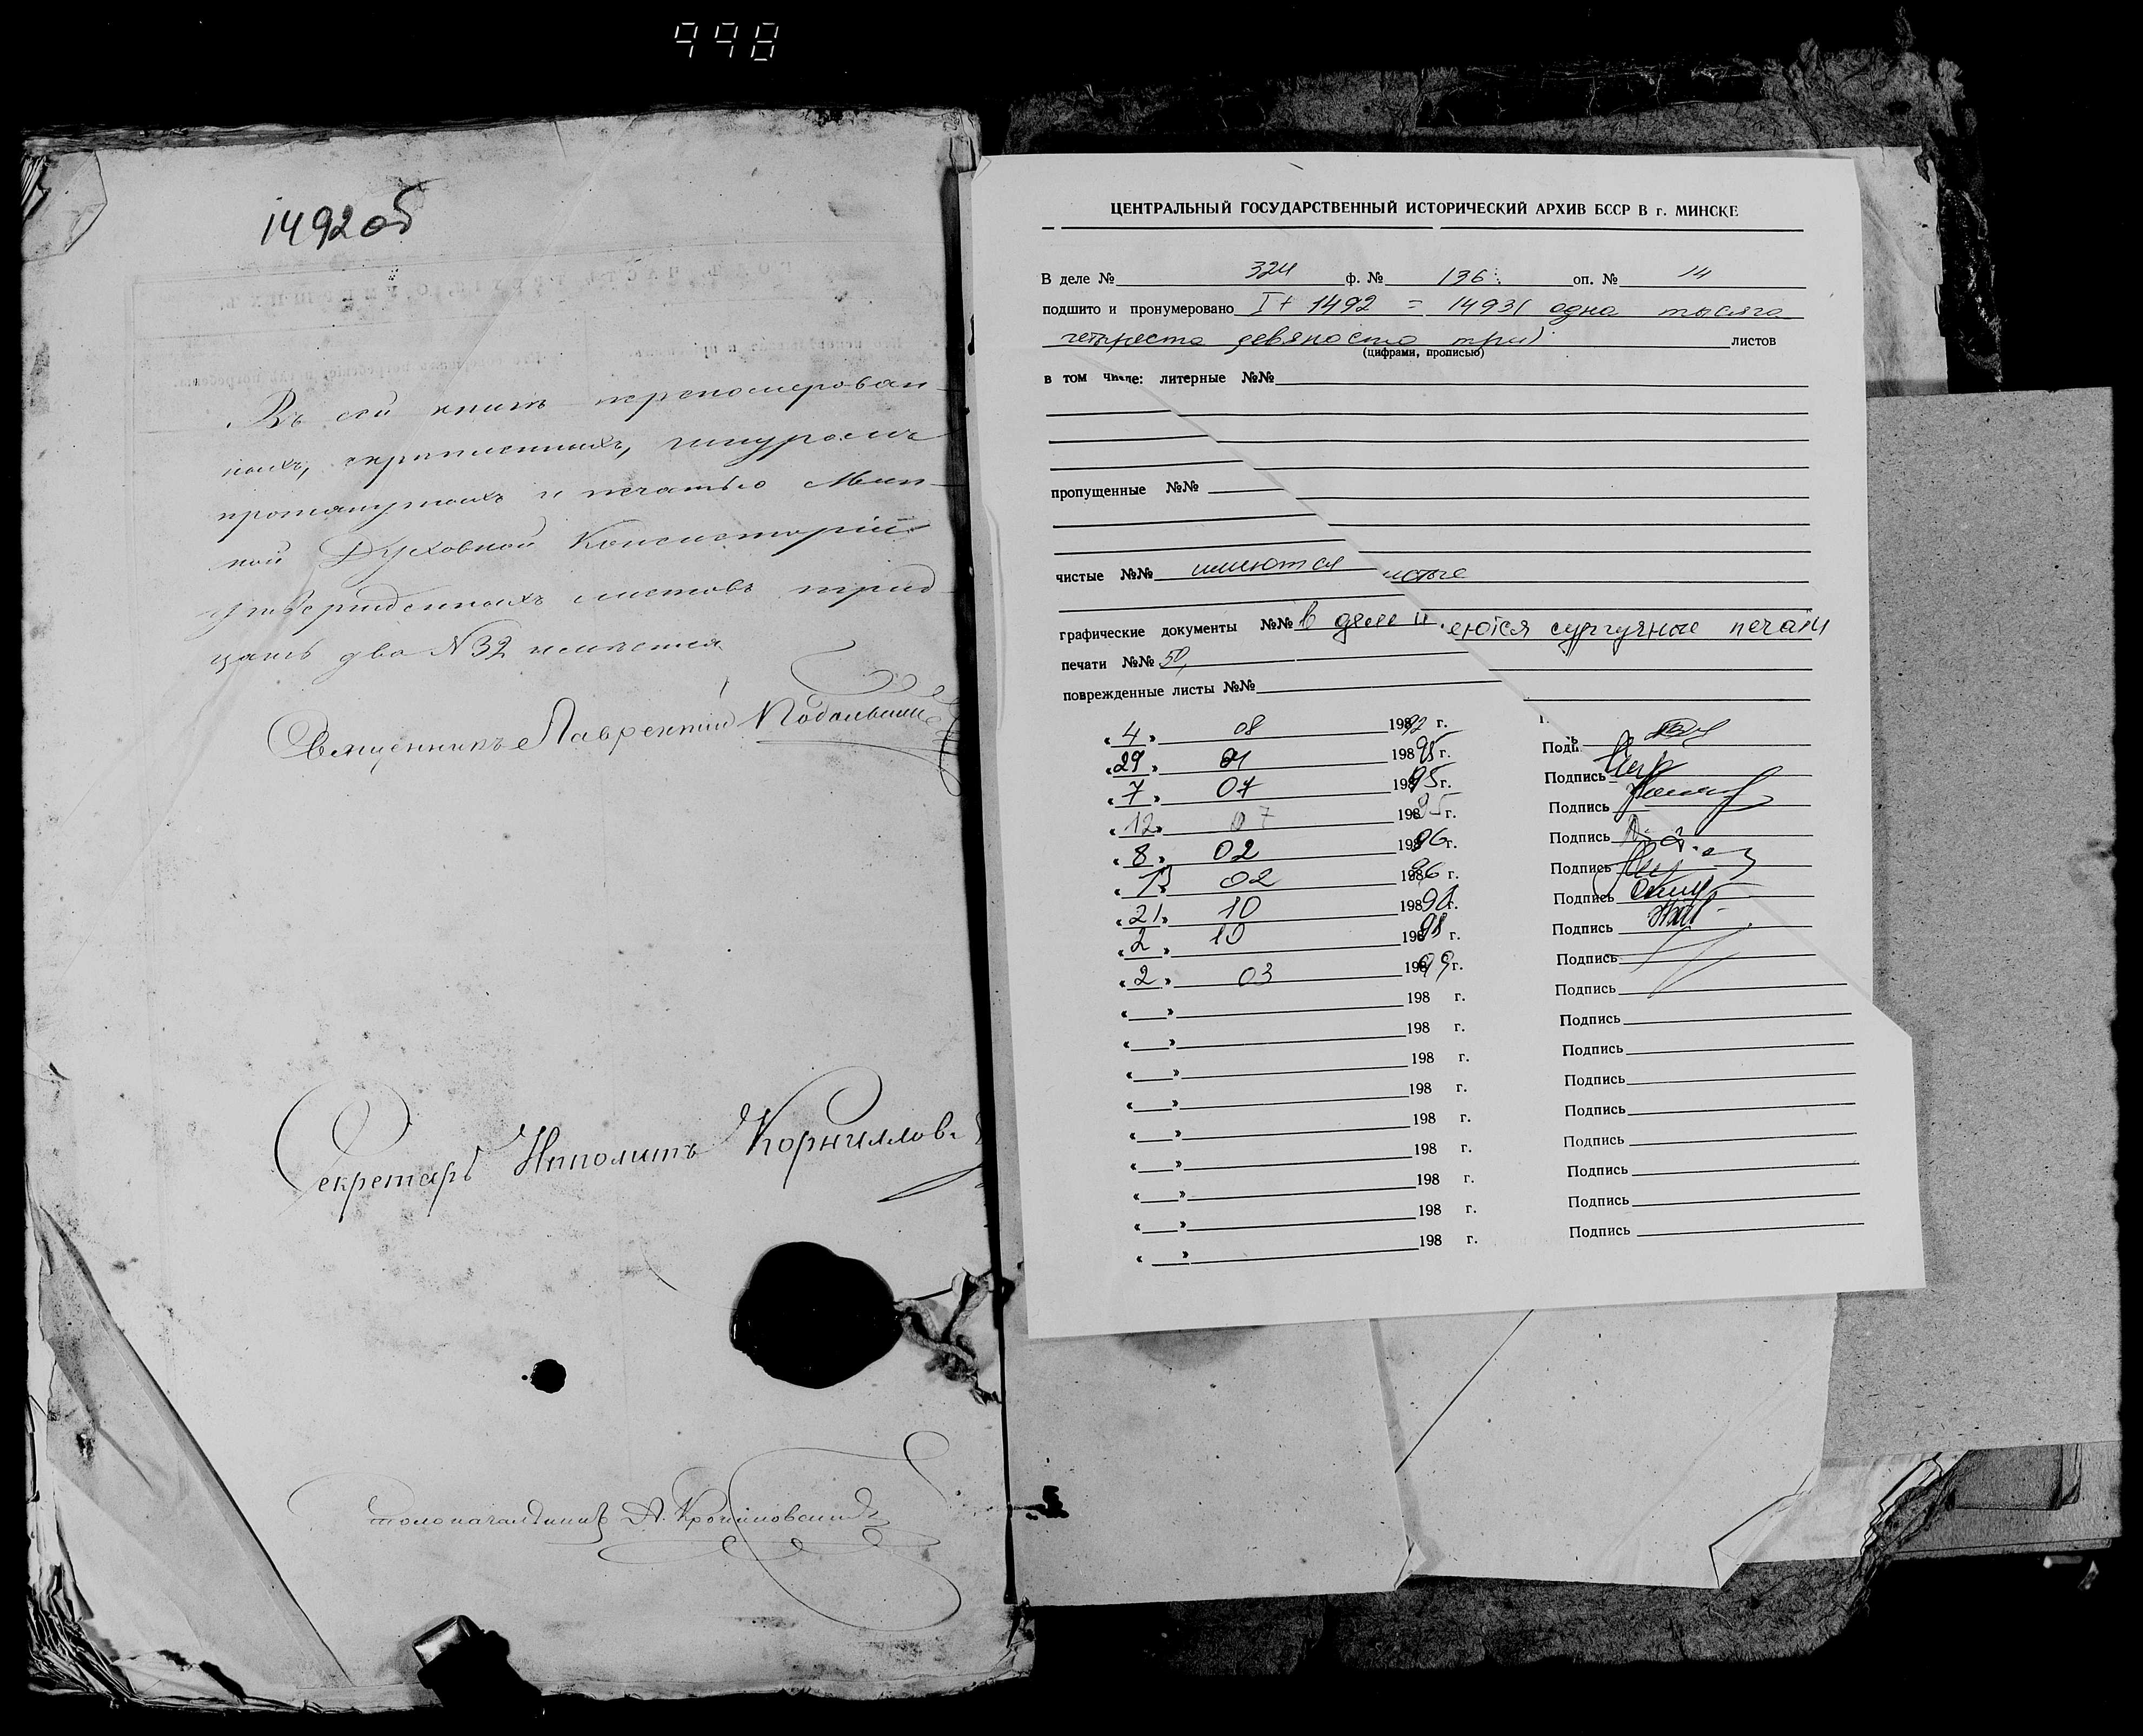 998
1492об
Въ сей книгѣ перенумерован-
ныхъ, скрѣпленныхъ, шнуромъ
протянутыхъ и печатью Мин-
ской Духовной Консисторіи
утвержденныхъ листовъ трид-
цать два №32 имѣется
Священникъ Лаврентій
Секретарь Ипполитъ Корниллов
Столоначальникъ А.
ЦЕНТРАЛЬНЫЙ ГОСУДАРСТВЕННЫЙ ИСТОРИЧЕСКИЙ АРХИВ БССР В г. МИНСКЕ
В деле № 324 ф. № 136 оп. № 14
подшито и пронумеровано I + 1492 = 1493 (одна тысяча
четыреста девяносто три) листов
(цифрами, прописью)
в том числе: литерные №№
пропущенные №№
чистые №№ имеются
графические документы №№ в деле имеются сургучные печати
печати №№ 50,
поврежденные листы №№
«4» 08 19892 г. Подпись
«29» 01 19895 г. Подпись
«7» 07 19895 г. Подпись
«12» 07 19895 г. Подпись
«8» 02 19896 г. Подпись
«13» 02 19896 г. Подпись
«21» 10 19898 г. Подпись
«2» 10 19898 г. Подпись
«2» 03 19899 г. Подпись
« » 198 г. Подпись
« » 198 г. Подпись
« » 198 г. Подпись
« » 198 г. Подпись
« » 198 г. Подпись
« » 198 г. Подпись
« » 198 г. Подпись
« » 198 г. Подпись
« » 198 г.